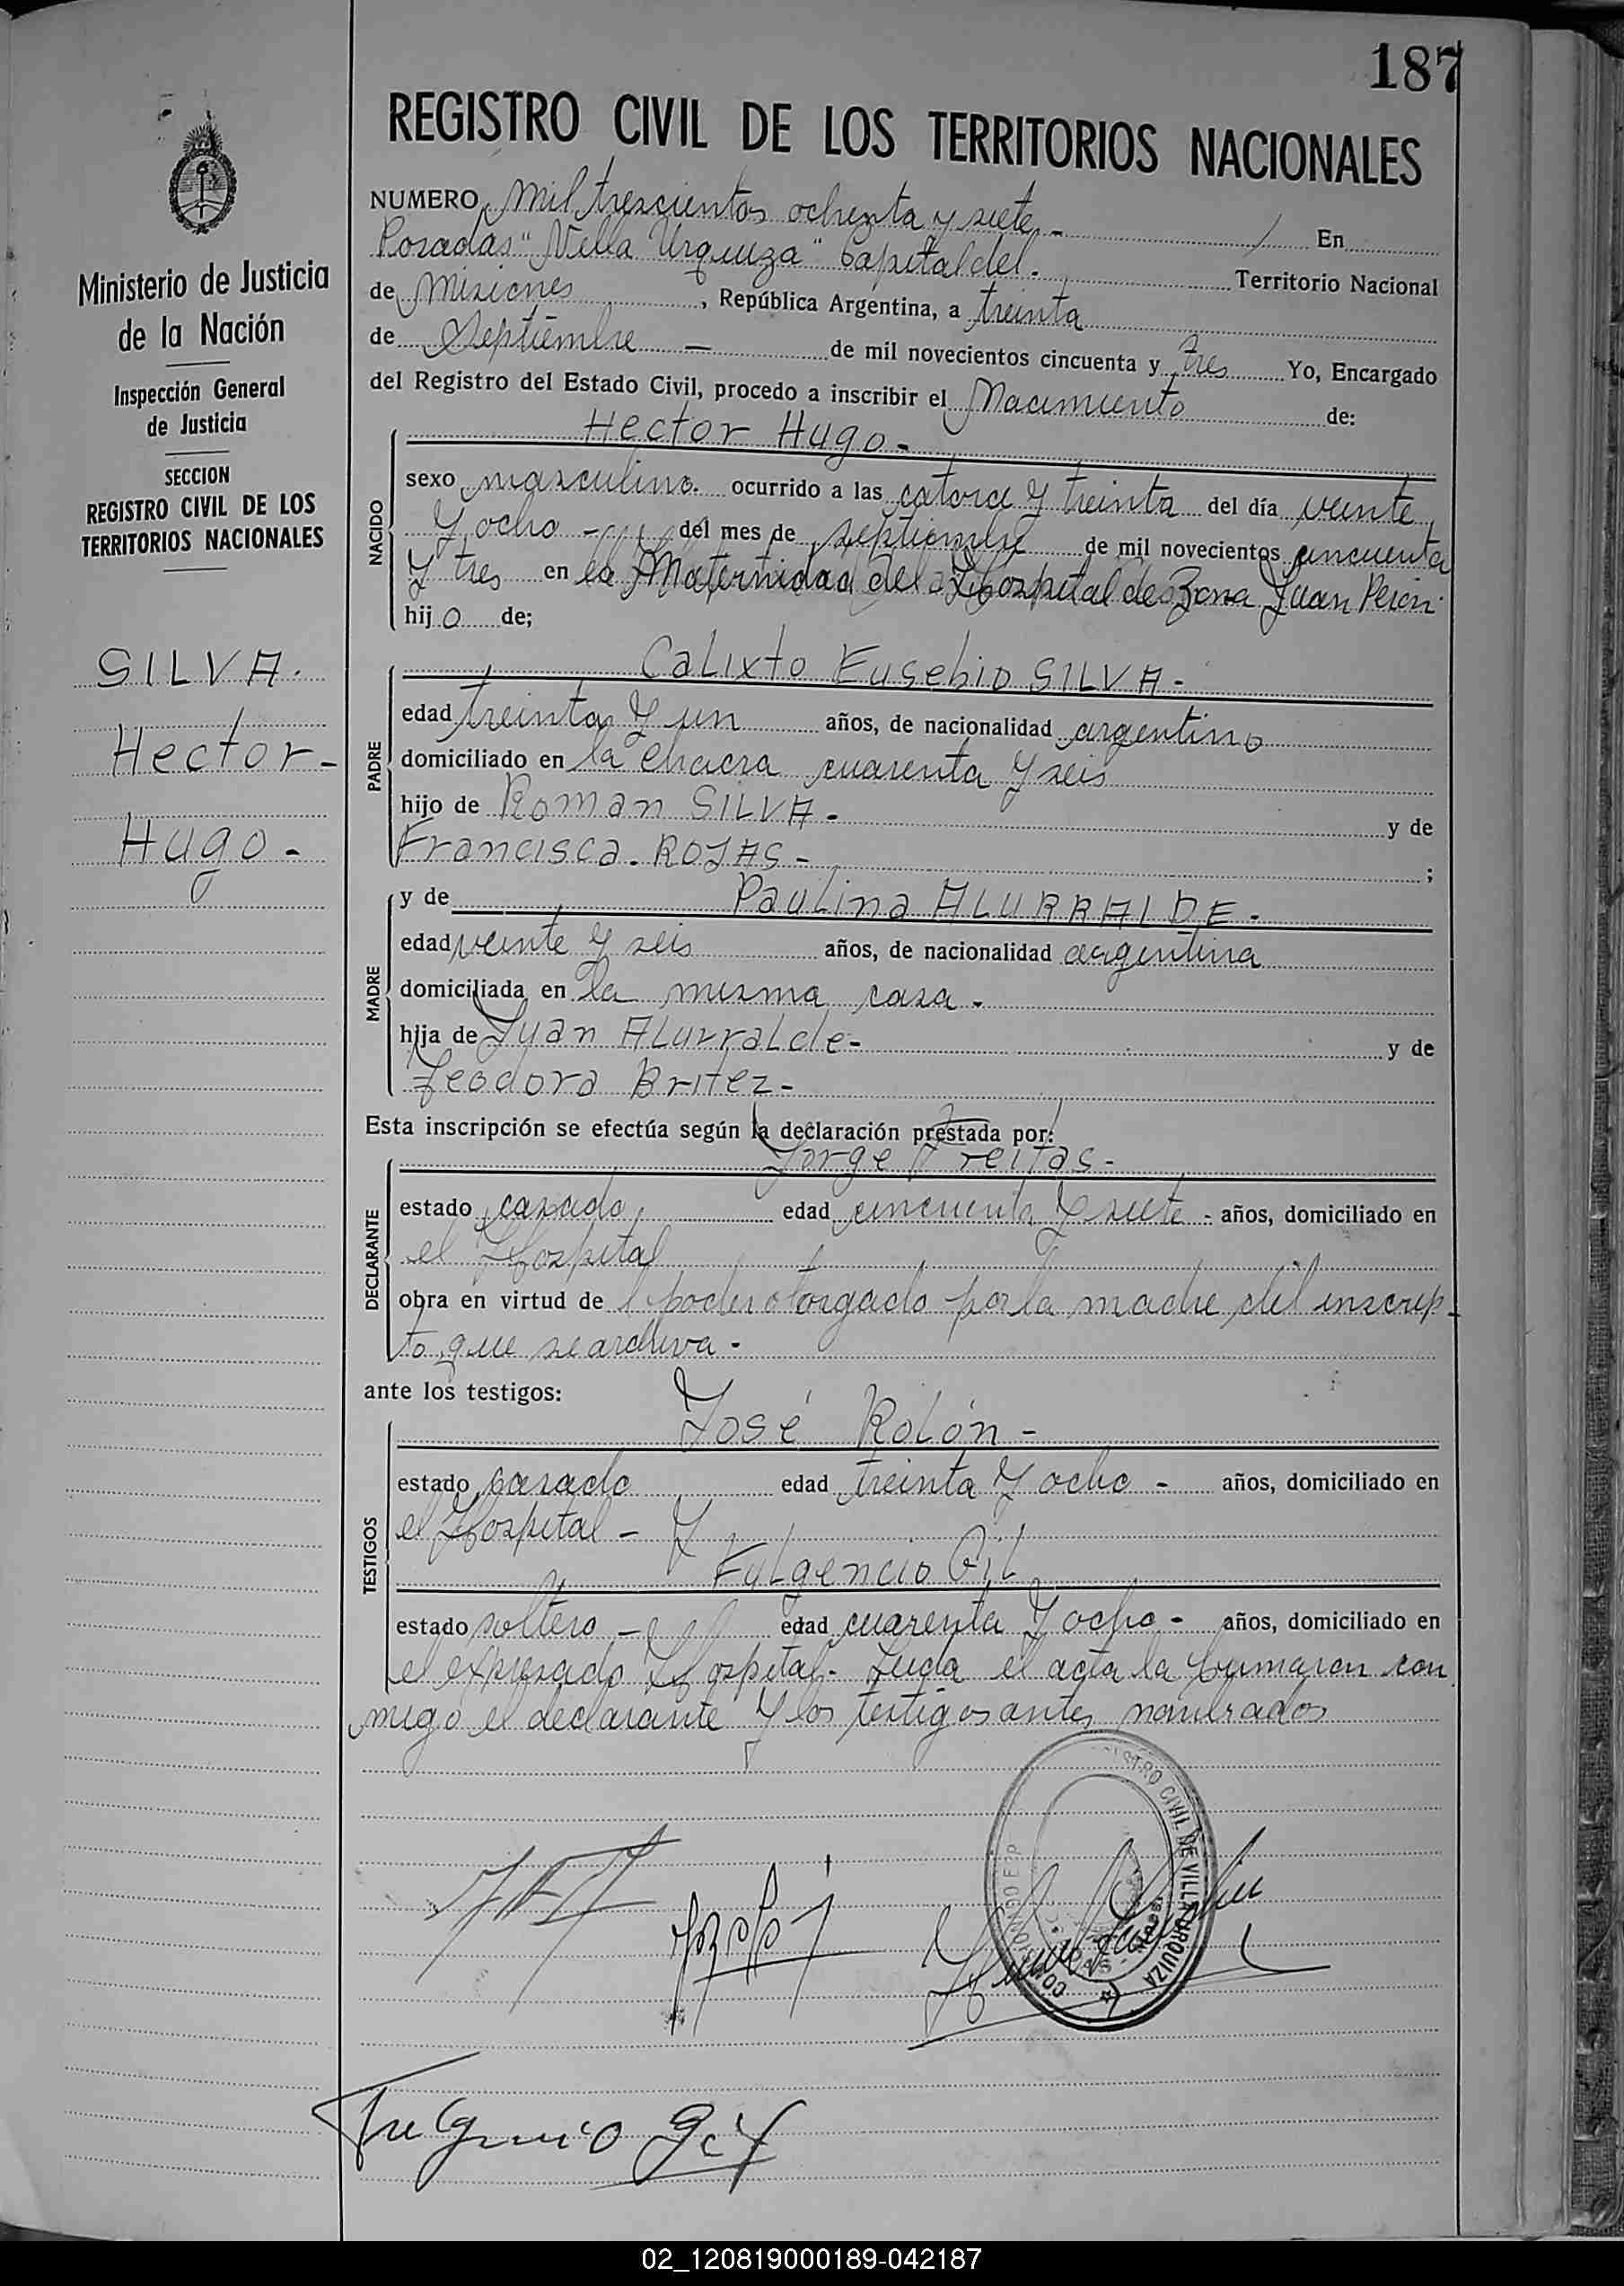 187
REGISTRO CIVIL DE LOS TERRITORIOS NACIONALES
Ministerio de Justicia
de la Nación
Inspección General
de Justicia
SECCION
REGISTRO CIVIL DE LOS
TERRITORIOS NACIONALES
SILVA.
Hector-
Hugo-
NUMERO mil trescientos ochenta y siete - / En
Posadas "Villa Urquiza" Capital del. Territorio Nacional
de Misiones, República Argentina, a treinta
de Septiembre - de mil novecientos cincuenta y tres Yo, Encargado
del Registro del Estado Civil, procedo a inscribir el Nacimiento de:
NACIDO
Hector Hugo-
sexo masculino. ocurrido a las catorce y treinta del día veinte
y ocho - del mes de septiembre de mil novecientos cincuenta
y tres en la Maternidad del Hospital de Zona Juan Perón.
hijo de;
PADRE
Calixto Eusebio SILVA-
edad treinta y un años, de nacionalidad argentino
domiciliado en la chacra cuarenta y seis
hijo de Roman SILVA- y de
Francisca. ROJAS- ;
MADRE
y de Paulina ALURRALDE-
edad veinte y seis años, de nacionalidad argentina
domiciliada en la misma casa-
hija de Juan ALurraLde- y de
Teodora Britez-
Esta inscripción se efectúa según la declaración prestada por:
DECLARANTE
Jorge Freitas-
estado casado edad cincuenta y siete - años, domiciliado en
el Hospital
obra en virtud de poder otorgado por la madre del inscrip-
to que se archiva-
ante los testigos:
TESTIGOS
José Rolón-
estado casado edad treinta y ocho - años, domiciliado en
el Hospital - y
Fulgencio Gil
estado soltero - edad cuarenta y ocho - años, domiciliado en
el expresado Hospital- Leida el acta la firmaron con
migo el declarante y los testigos antes nombrados
REGISTRO CIVIL DE VILLA URQUIZA
Fulgencio Gil
02_120819000189-042187